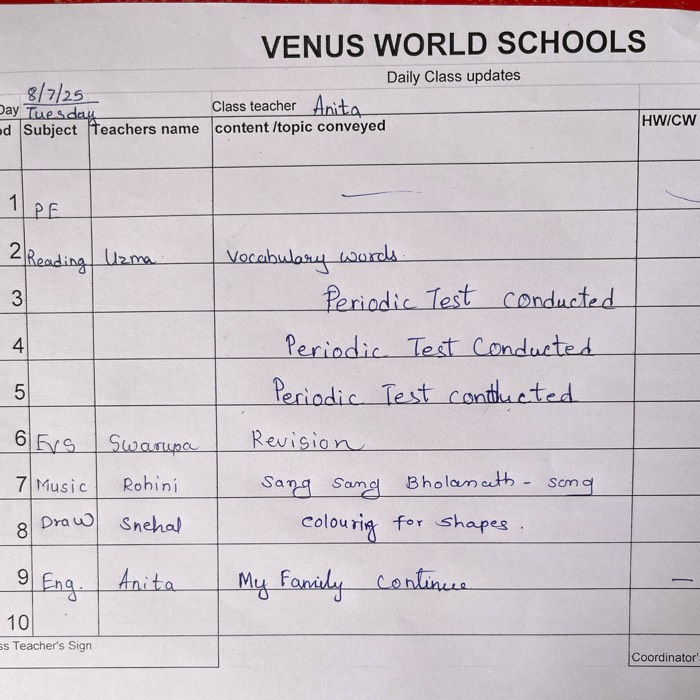 VENUS WORLD SCHOOLS
Daily Class updates
8/7/25
Day Tuesday Class teacher Anita
d Subject Teachers name content /topic conveyed HW/CW
1 PE —
2 Reading Uzma Vocabulary words
3 Periodic Test conducted
4 Periodic Test Conducted
5 Periodic Test conducted
6 EVS Swarupa Revision
7 Music Rohini Sang Sang Bholanath - song
8 Draw Snehal colourig for shapes.
9 Eng. Anita My Family continue —
10
ss Teacher's Sign Coordinator'